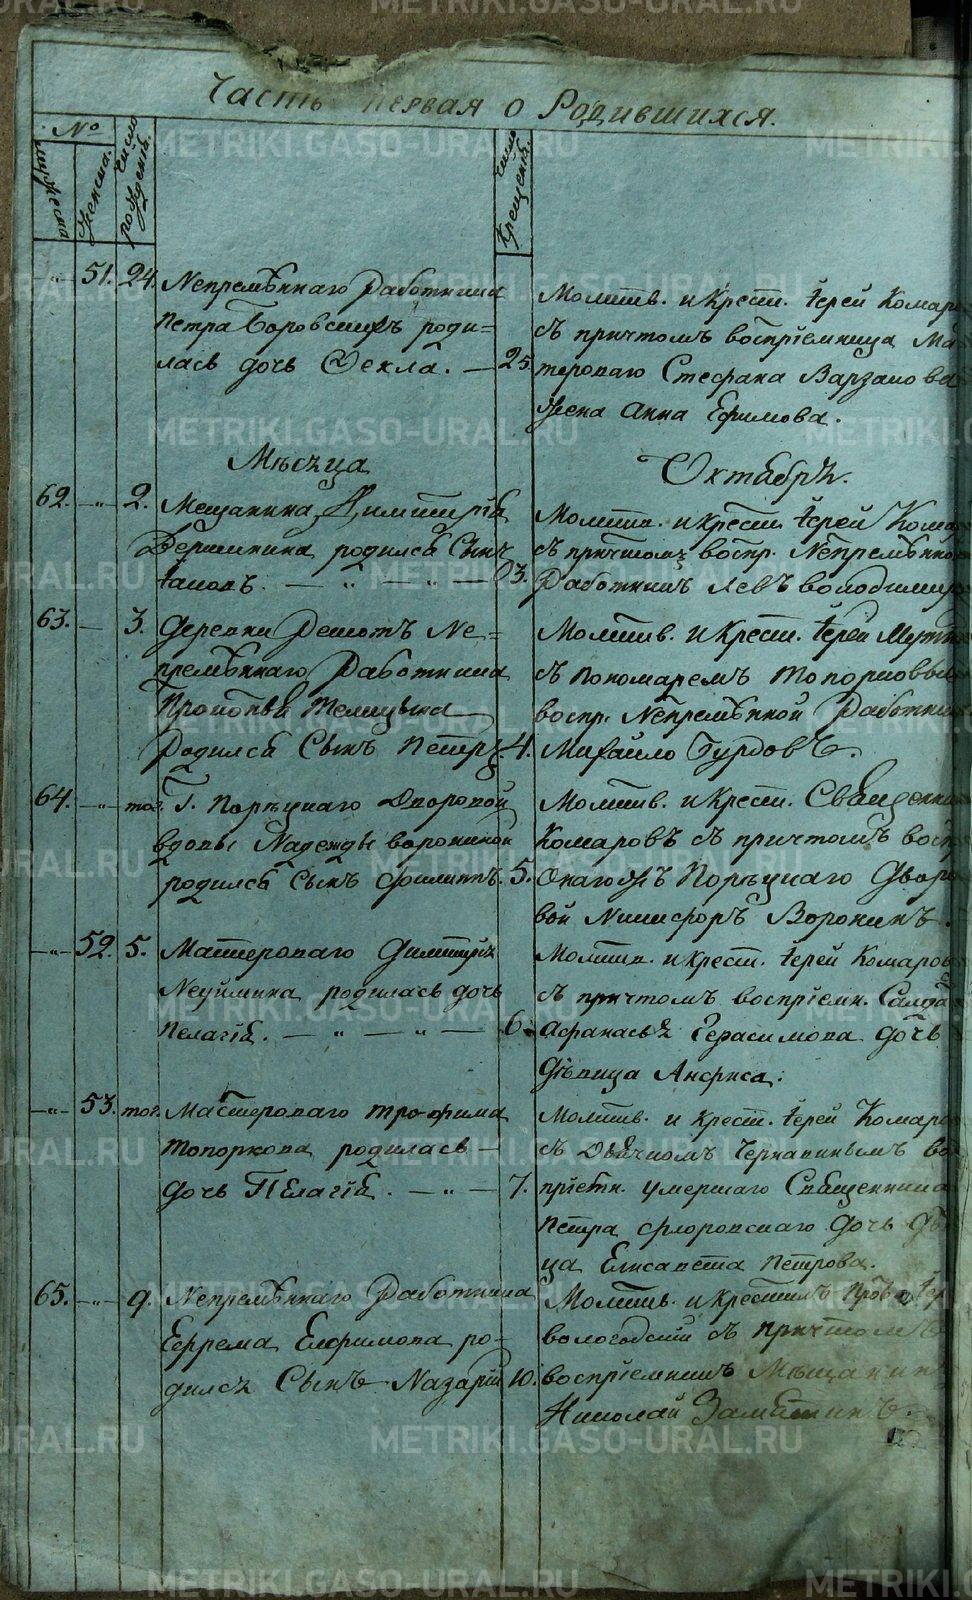 Часть первая о Родившихся.
№
мужеска
женска.
число рожденія.
число крещенія.
-"- 51. 24. Непремѣннаго Работника
Петра Боровскихъ роди=
лась дочь Ѳекла. — 25.
Молитв. и Крест. Іерей Комаро
съ причтомъ воспріемница Ма
тероваго Стефана Варзакова
Жена Анна Ефимова.
Мѣсяца Октябрь.
62. -"- 2. Мещанина Димитрія
Вершинина родился Сынъ
Іаковъ. — " — " — 03.
Молитв. и крести. Іерей Кома
съ причтомъ воспр. Непремѣнно
Работникъ Левъ володимиро
63. — 3. Деревни Решотъ Не=
премѣннаго Работника
Прокопья Телицына
Родился Сынъ Петръ. 4.
Молитв. и Крест. Іерей
съ Пономаремъ Топорковым
воспр. Непремѣнной Работник
Михайло Бурдовъ.
64. -"- тог. Г. Порѣцкаго Дворовой
вдовы Надежды ворониной
родился Сынъ Филиппъ. 5.
Молитв. и Крест. Священни
Комаровъ съ причтомъ воспр
Онагожъ Порѣцкаго Дворо
вой Никифоръ Воронинъ.
-"- 52. 5. Мастероваго Димитрія
Неуймина родилась дочь
Пелагія. — " — " — 6.
Молитв. и крест. Іерей Комаров
съ причтомъ воспріемн.
Афанасья Герасимова дочь
Дѣвица Анфиса.
-"- 53. тог. Мастероваго Трофима
Топоркова родилась —
дочь Пелагія. — " — 7.
Молитв. и крест. Іерей Комаро
съ Дьячкомъ Чернавинымъ во
пріемн. умершаго Священника
Петра флоровскаго дочь дѣ
ца Елисавета Петрова.
65. -"- 9. Непремѣннаго Работника
Ефрема Елфимова ро-
дился Сынъ Назарій 10.
Молитв. и крестилъ
вологодскій съ причтомъ
воспріемникъ Мѣщанинъ
Николай Замятинъ.
METRIKI.GASO-URAL.RU